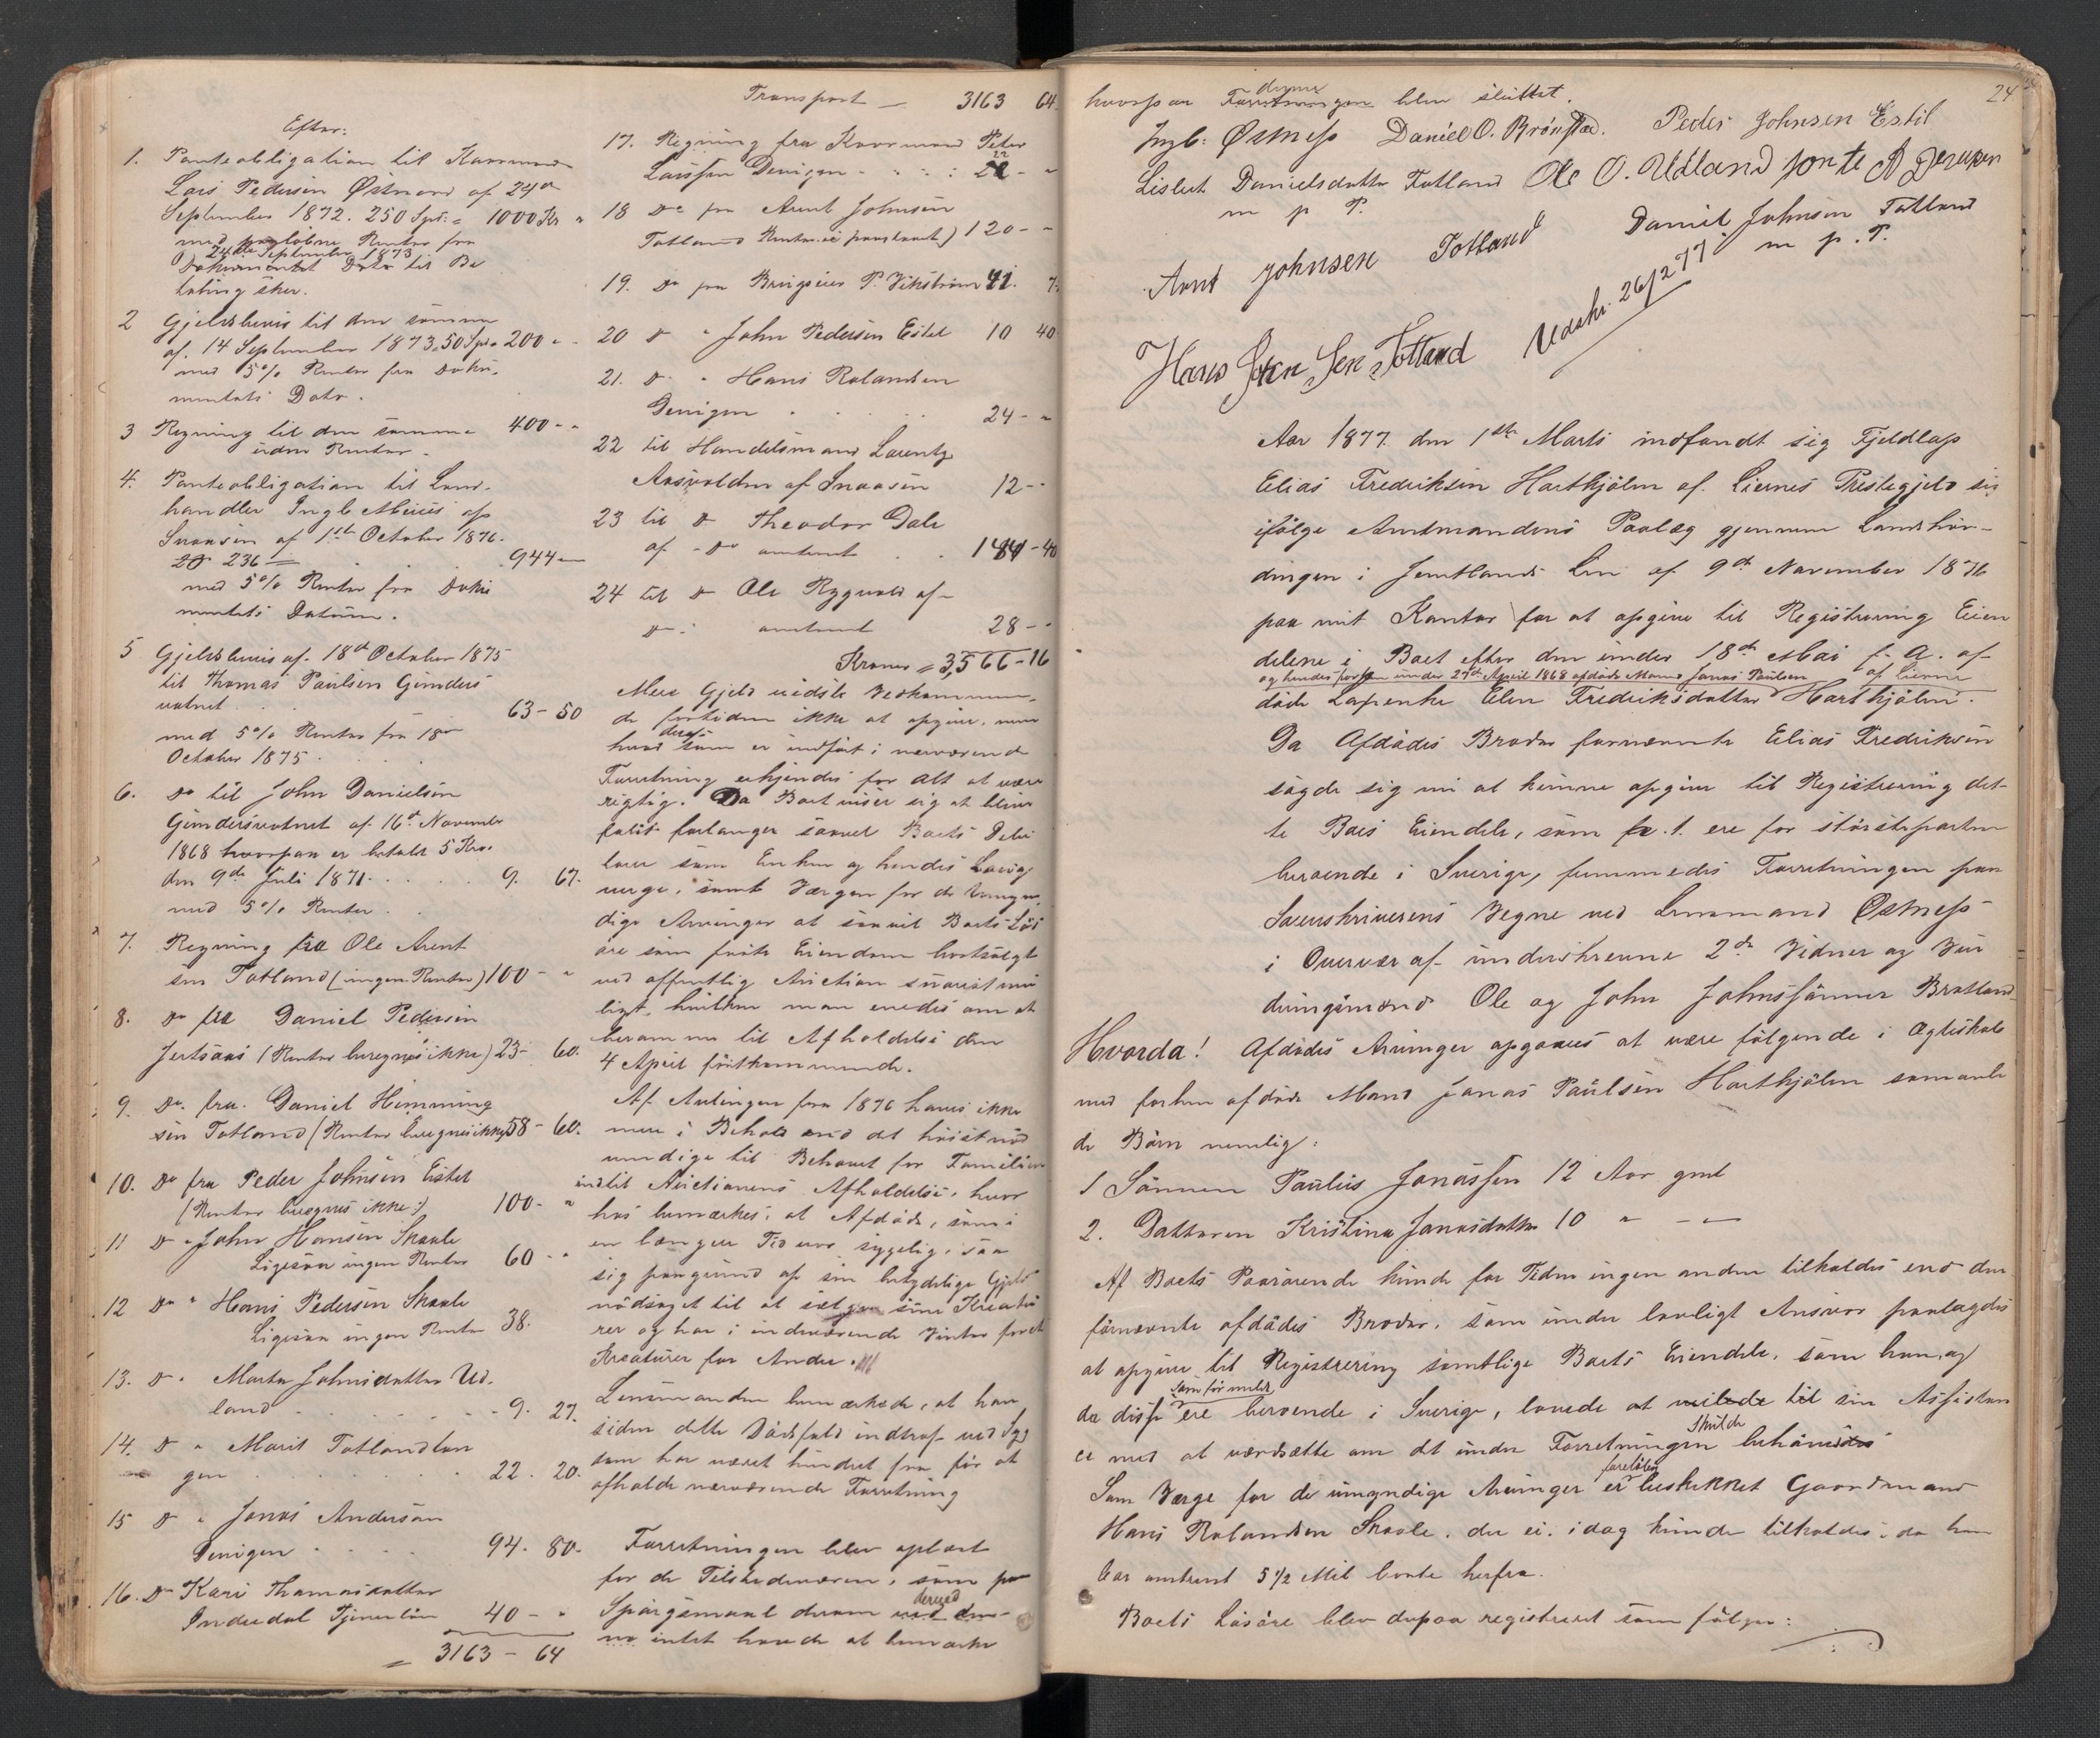 Efter:
1. Panteobligation til Kaarmand
Lars Pedersen Østnæs af 24de
September 1872. 250 Spd. = 1000 Kr "
med Renter fra
24de September 1873
Dokumentet Dato til Be
taling sker.
2 Gjeldsbevis til den samme
af. 14 September 1873. 50 Spd = 200 "
med 5% Renter fra Doku-
mentets Dato.
3 Regning til den samme 400 - "
uden Renter.
4. Panteobligation til Land-
handler Ingb Meiæus af
Snaasen af 1ste October 1876.
236 944 -
med 5% Renter fra Doku
mentets Datum.
5 Gjeldsbevis af 18de October 1875
til Thomas Paulsen Gunders
vatnet 63 - 50
med 5% Renter fra 18de
October 1875.
6. Do til John Danielsen
Gundersvatnet af 16de November
1868 hvorpaa er betalt 5 Kro.
den 9de Juli 1871. 9. 67.
med 5% Renter
7. Regning fra Ole Arent
sen Totland (ingen Renter) 100 - "
8. Do fra Daniel Pedersen
Jertsaas (Renter beregnes ikke) 23 - 60.
9. Do. fra. Daniel Henning
sen Totland (Renter beregnes ikke) 58 - 60.
10. Do fra Peder Johnsen Estel
(Renter beregnes ikke) 100 - "
11 D " John Hansen Skaale
Ligesaa ingen Renter 60 - "
12 Do " Hans Pedersen Skaale
Ligesaa ingen Renter 38.
13. D " Marta Johnsdatter Ud-
land 9. 27.
14. D " Marit Totlandlan
gen 22. 20.
15 D " Jonas Andersen
Devigen 94. 80.
16. D " Kari Thomasdatter
Inderdal Tjeneløn 40 - "
= 3163 - 64
Transport — 3163 64.
17. Regning fra Kaarmand Peter
Larssen Devigen - 22 - "
18 Do fra Arent Johnsen
Totland 120 - "
19. Do fra Brigsius P. Vikstrøm 41. 7.
20 D " John Pedersen Estel 10 40
21. D " Hans Rolandsen
Devigen 24 - "
22 til Handelsmand Laurentz
Aasvolden af Snaasen 12 - "
23 til D Theodor Dahl
af Do omtrent 184 - 40
24 til D Ole Rygvold af
Do omtrent 28 - "
Kroner = 3,566 - 16
Mere Gjeld vidste Vedkommen-
de fortiden ikke at opgive, men
hvad deraf som er indført i nærværende
Forretning erkjendes for alt at være
rigtig. Da Boet viser sig at blive
falit forlanger saavel Boets Debi
torer som Enken og hendes Laug
værge, samt Værgen for de Umyn-
dige Arvinger at saavel Boets Løs
øre som faste Eiendom bortsælges
ved offentlig Auction snarest mu
ligt, hvilken man enedes om at
berammes til Afholdelse den
4 April førstkommende.
Af Avlingen fra 1876 haves ikke
mere i Behold end det høist nød
vendige til Behovet for Familien
indtil Auctionens Afholdelse, hvor
hos bemærkes, at Afdøde, som i
en længere Tid var sygelig, saa
sig paagrund af sin betydelige Gjeld
nødsaget til at sælge sine Kreatu
rer og har i indeværende Vinter foret
Kreaturer for Andre.
Lensmanden bemærkede, at han
siden dette Dødsfald indtraf ved Syg
dom har været hindret fra før at
afholde nærværende Forretning
Forretningen blev oplæst
for de Tilstedeværende, som paa
Spørgsmaal derom dermed
intet havde at bemærke
24
hvorpaa denne Forretningen blev sluttet.
Ingb: Østnæss Daniel O. Brønstad. Peder Johnsen Estil
Lisbet Danielsdatter Totland Ole O. Udland Jonte A Devigen
m p P.
Arnt Johnsen Totland Daniel Johnsen Totland
m. p. P.
Hans Johnsen Totland Udskr. 26/2 77
Aar 1877. den 1ste Marts indfandt sig Fjeldlap
Elias Fredriksen Hartkjølen af Liernes Prestegjeld sig
ifølge Amtmandens Paalæg gjennem Landshøv-
dingen i Jemtlands Len af 9de November 1876
paa mit Kontor for at opgive til Registrering Eien
delene i Boet efter den under 18de Mai f. A. af-
og hendes forhen under 27de April 1868 afdøde Mand Jonas Paulsen af Lierne
døde Lapenke Elen Fredriksdatter Hartkjølen.
Da Afdødes Broder fornævnte Elias Fredriksen
sagde sig nu at kunne opgive til Registrering det-
te Boes Eiendele, som for. t. ere for størsteparten
beroende i Sverige, fremmedes Forretningen paa
Sorenskriverens Vegne ved Lensmand Østnæss
i Overvær af underskrevne 2de Vidner og Vur
deringsmænd Ole og John Johnssønner Bratland
Hvorda! Afdødes Arvinger opgaves at være følgende i Ægteskab
med forhen afdøde Mand Jonas Paulsen Hartkjølen sammenavle
de Børn nemlig:
1 Sønnen Paulus Jonassen 12 Aar gml
2. Datteren Kristina Jonasdatter 10 " - " -
Af Boets Paarørende kunde for Tiden ingen anden tilkaldes end den
fornævnte afdødes Broder, som under lovligt Ansvar paalagdes
at opgive til Registrering samtlige Boets Eiendele, som han, og
da disse som før meldt ere beroende i Sverige, lovede at veilede til sin Assistan
ce med at værdsætte om det under Forretningen skulde behøves
Som Værge for de umyndige Arvinger er foreløbig beskikket Gaardmand
Hans Rolandsen Skaale. der ei. idag kunde tilkaldes, da han
bor omtrent 5 1/2 Mil borte herfra.
Boets Løsøre blev derpaa registreret som følger: